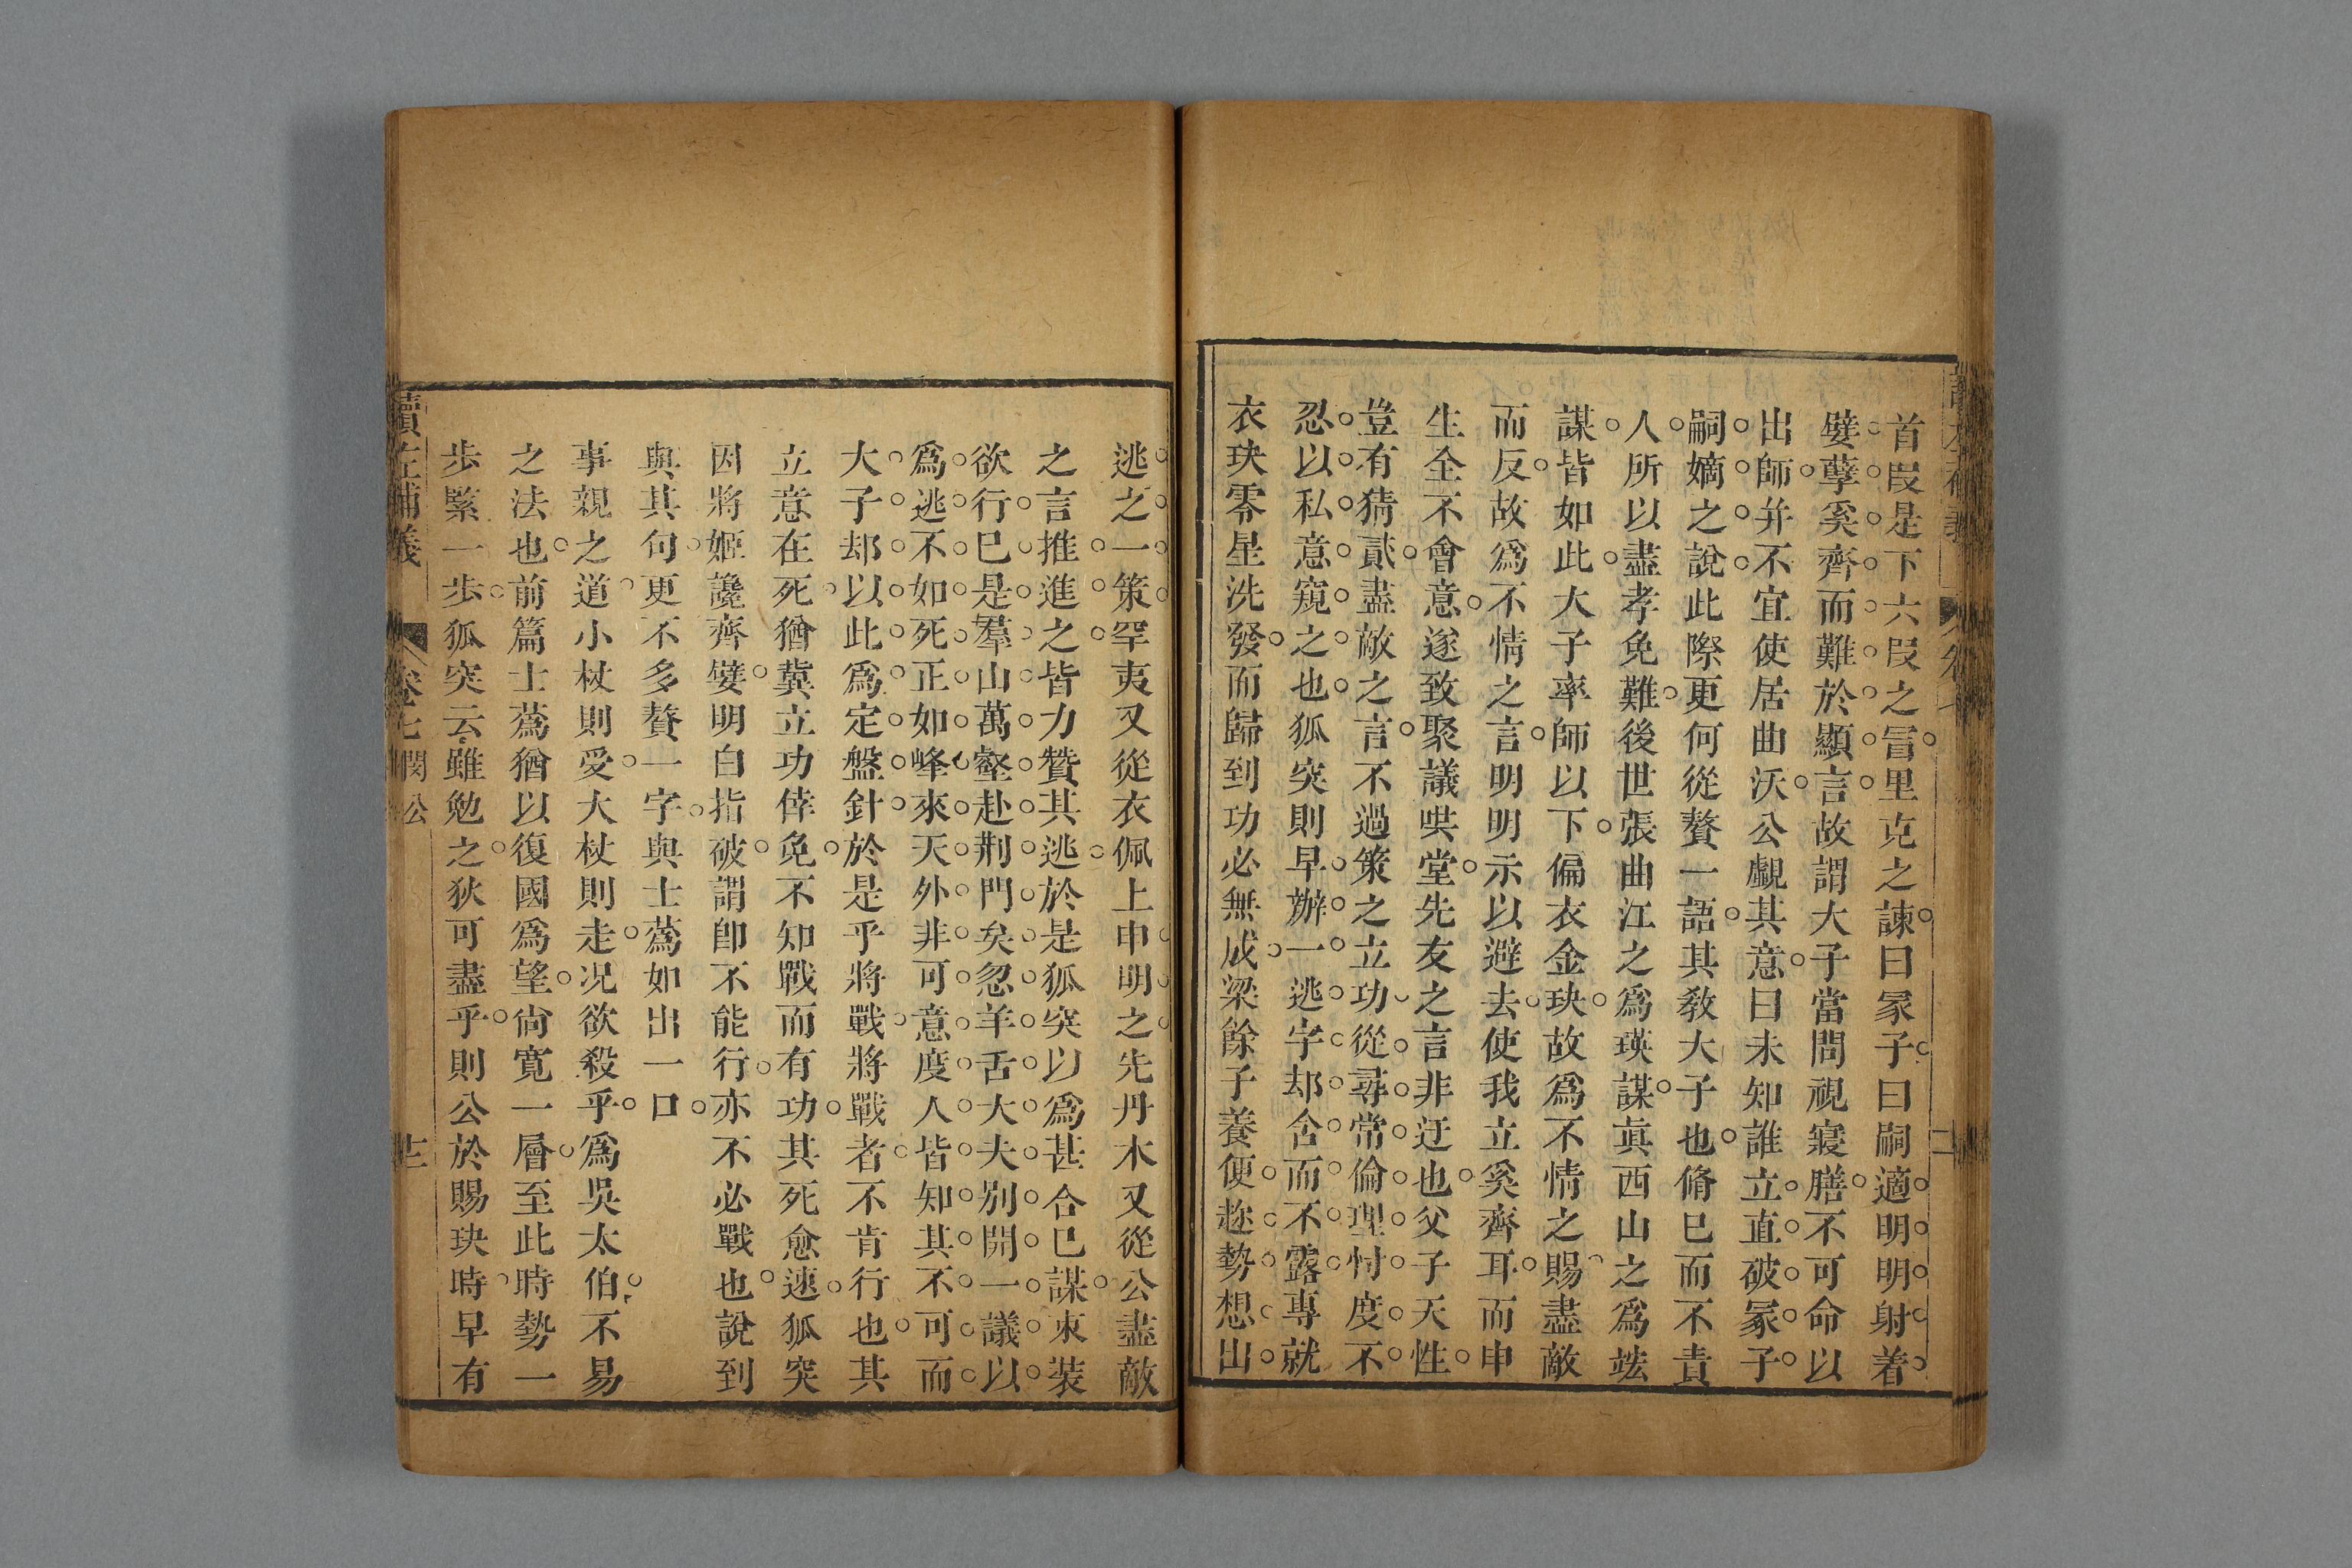 首叚是下六叚之冒里克之諫曰冢子曰嗣適明明射着
嬖孽奚齊而難於顯言故謂大子當問視寢膳不可命以
出師并不宜使居曲沃公覷其意曰未知誰立直破冢子
嗣嫡之說此際更何從贅一語其敎大子也脩已而不責
人所以盡孝免難後世張曲江之爲瑛謀眞西山之爲竑
謀皆如此大子率師以下偏衣金玦故爲不情之賜盡敵
而反故爲不情之言明明示以避去使我立奚齊耳而申
生全不會意遂致聚議哄堂先友之言非迂也父子天性
豈有猜貳盡敵之言不過策之立功從尋常倫理忖度不
忍以私意窺之也狐突則早辦一逃字却含而不露專就
衣玦零星洗發而歸到功必無成梁餘子養便趂勢想出
逃之一策罕夷又從衣佩上申明之先丹木又從公盡敵
之言推進之皆力贊其逃於是狐突以爲甚合已謀束裝
欲行巳是羣山萬壑赴荆門矣忽羊舌大夫別開一議以
爲逃不如死正如峰來天外非可意度人皆知其不可而
大子却以此爲定盤針於是乎將戰將戰者不肯行也其
立意在死猶冀立功倖免不知戰而有功其死愈速狐突
因將姬讒齊嬖明白指破謂卽不能行亦不必戰也說到
與其句更不多贅一字與士蔿如出一口
事親之道小杖則受大杖則走况欲殺乎爲吳太伯不易
之法也前篇士蔿猶以復國爲望尙寬一層至此時勢一
步緊一步狐突云雖勉之狄可盡乎則公於賜玦時早有
讀左補義
卷七閔公